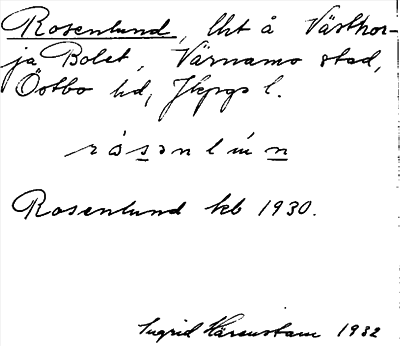 Rosenlund, lht å Västhor-
ja Bolet, Värnamo stad,
Östbo hd, Jkpgs l.
Rosenlund kb 1930.
Ingrid Härenstam 1982